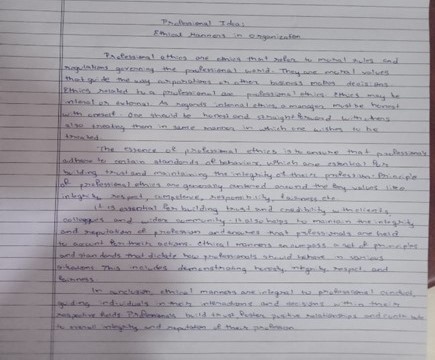 Professional Idea:
Ethical Manners in Organization
Professional ethics are ethics that refers to moral rules and
regulations governing the professional world. They are moral values
that guide the way corporations or other business makes decisions.
Ethics related to a professional are professional ethics. Ethics may be
internal or External. As regards internal ethics a manager must be honest
with oneself. One should be honest and straight forward with others
also treating them in same manner in which one wishes to be
treated.
The essence of professional ethics is to ensure that professionals
adhere to certain standards of behavior, which are essential for
building trust and maintaining the integrity of their profession. Principle
of professional ethics are generally centered around the key values like
integrity, respect, competence, responsibility, fairness etc.
It is essential for building trust and credibility with clients,
colleagues and wider community. It also helps to maintain the integrity
and reputation of profession and ensures that professionals are held
to account for their actions. Ethical manners encompass a set of principles
and standards that dictate how professionals should behave in various
situations. This includes demonstrating honesty, integrity, respect, and
fairness.
In conclusion, ethical manners are integral to professional conduct,
guiding individuals in their interactions and decisions within their
respective fields. Professionals build trust, foster positive relationships and contribute
to overall integrity and reputation of their profession.